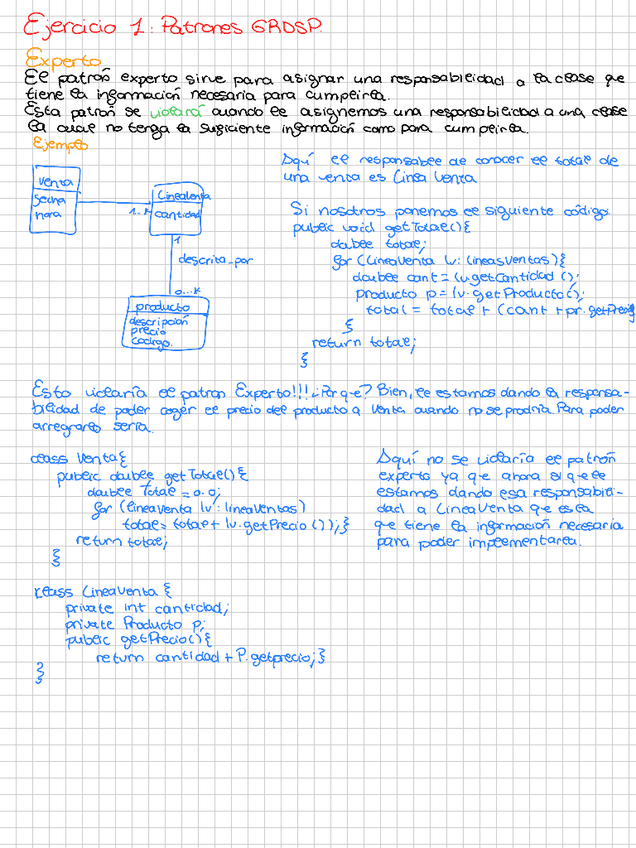 Ejercicio 1: Patrones GRASP.
Experto
El patrón experto sirve para asignar una responsabilidad a la clase que
tiene la información necesaria para cumplirla.
Esta patrón se violará cuando le asignemos una responsabilidad a una clase
la cual no tenga la suficiente información como para cumplirla.
Ejemplo
Venta
fecha
hora
1..*
LineaVenta
cantidad
1
descrita_por
0...*
producto
descripción
precio
codigo.
Aquí el responsable de conocer el total de
una venta es Linea Venta
Si nosotros ponemos el siguiente código
public void getTotal(){
double total;
for (LineaVenta lv: lineasVentas){
double cant = lv.getCantidad ();
producto p = lv.getProducto();
total = total + (cant + pr.getPrecio
}
return total;
}
Esto violaría el patron Experto!!! ¿Por qe? Bien, le estamos dando la responsa-
bilidad de poder coger el precio del producto a Venta cuando no se prodría. Para poder
arreglarlo sería.
class Venta{
public double getTotal(){
double Total = 0.0;
for (lineaVenta lv: lineaVentas)
total= total+ lv.getPrecio());}
return total;
}
Aquí no se violaría el patrón
experto ya qe ahora si qe le
estamos dando esa responsabili-
dad a LineaVenta qe es la
qe tiene la información necesaria
para poder implementarla.
class LineaVenta {
private int cantidad;
private Producto p;
public getPrecio(){
return cantidad + P.getprecio;}
}